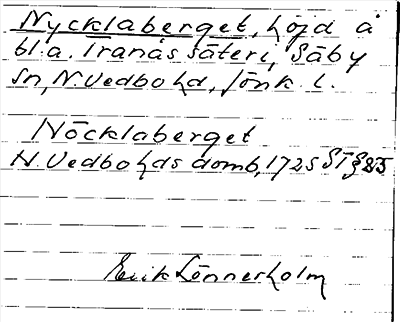 Nycklaberget, höjd å
bl.a. Tranås säteri, Säby
sn, N. Vedbo hd, Jönk. l.
Nöcklaberget
N. Vedbo hds domb, 1725 ST § 85
Erik Lönnerholm